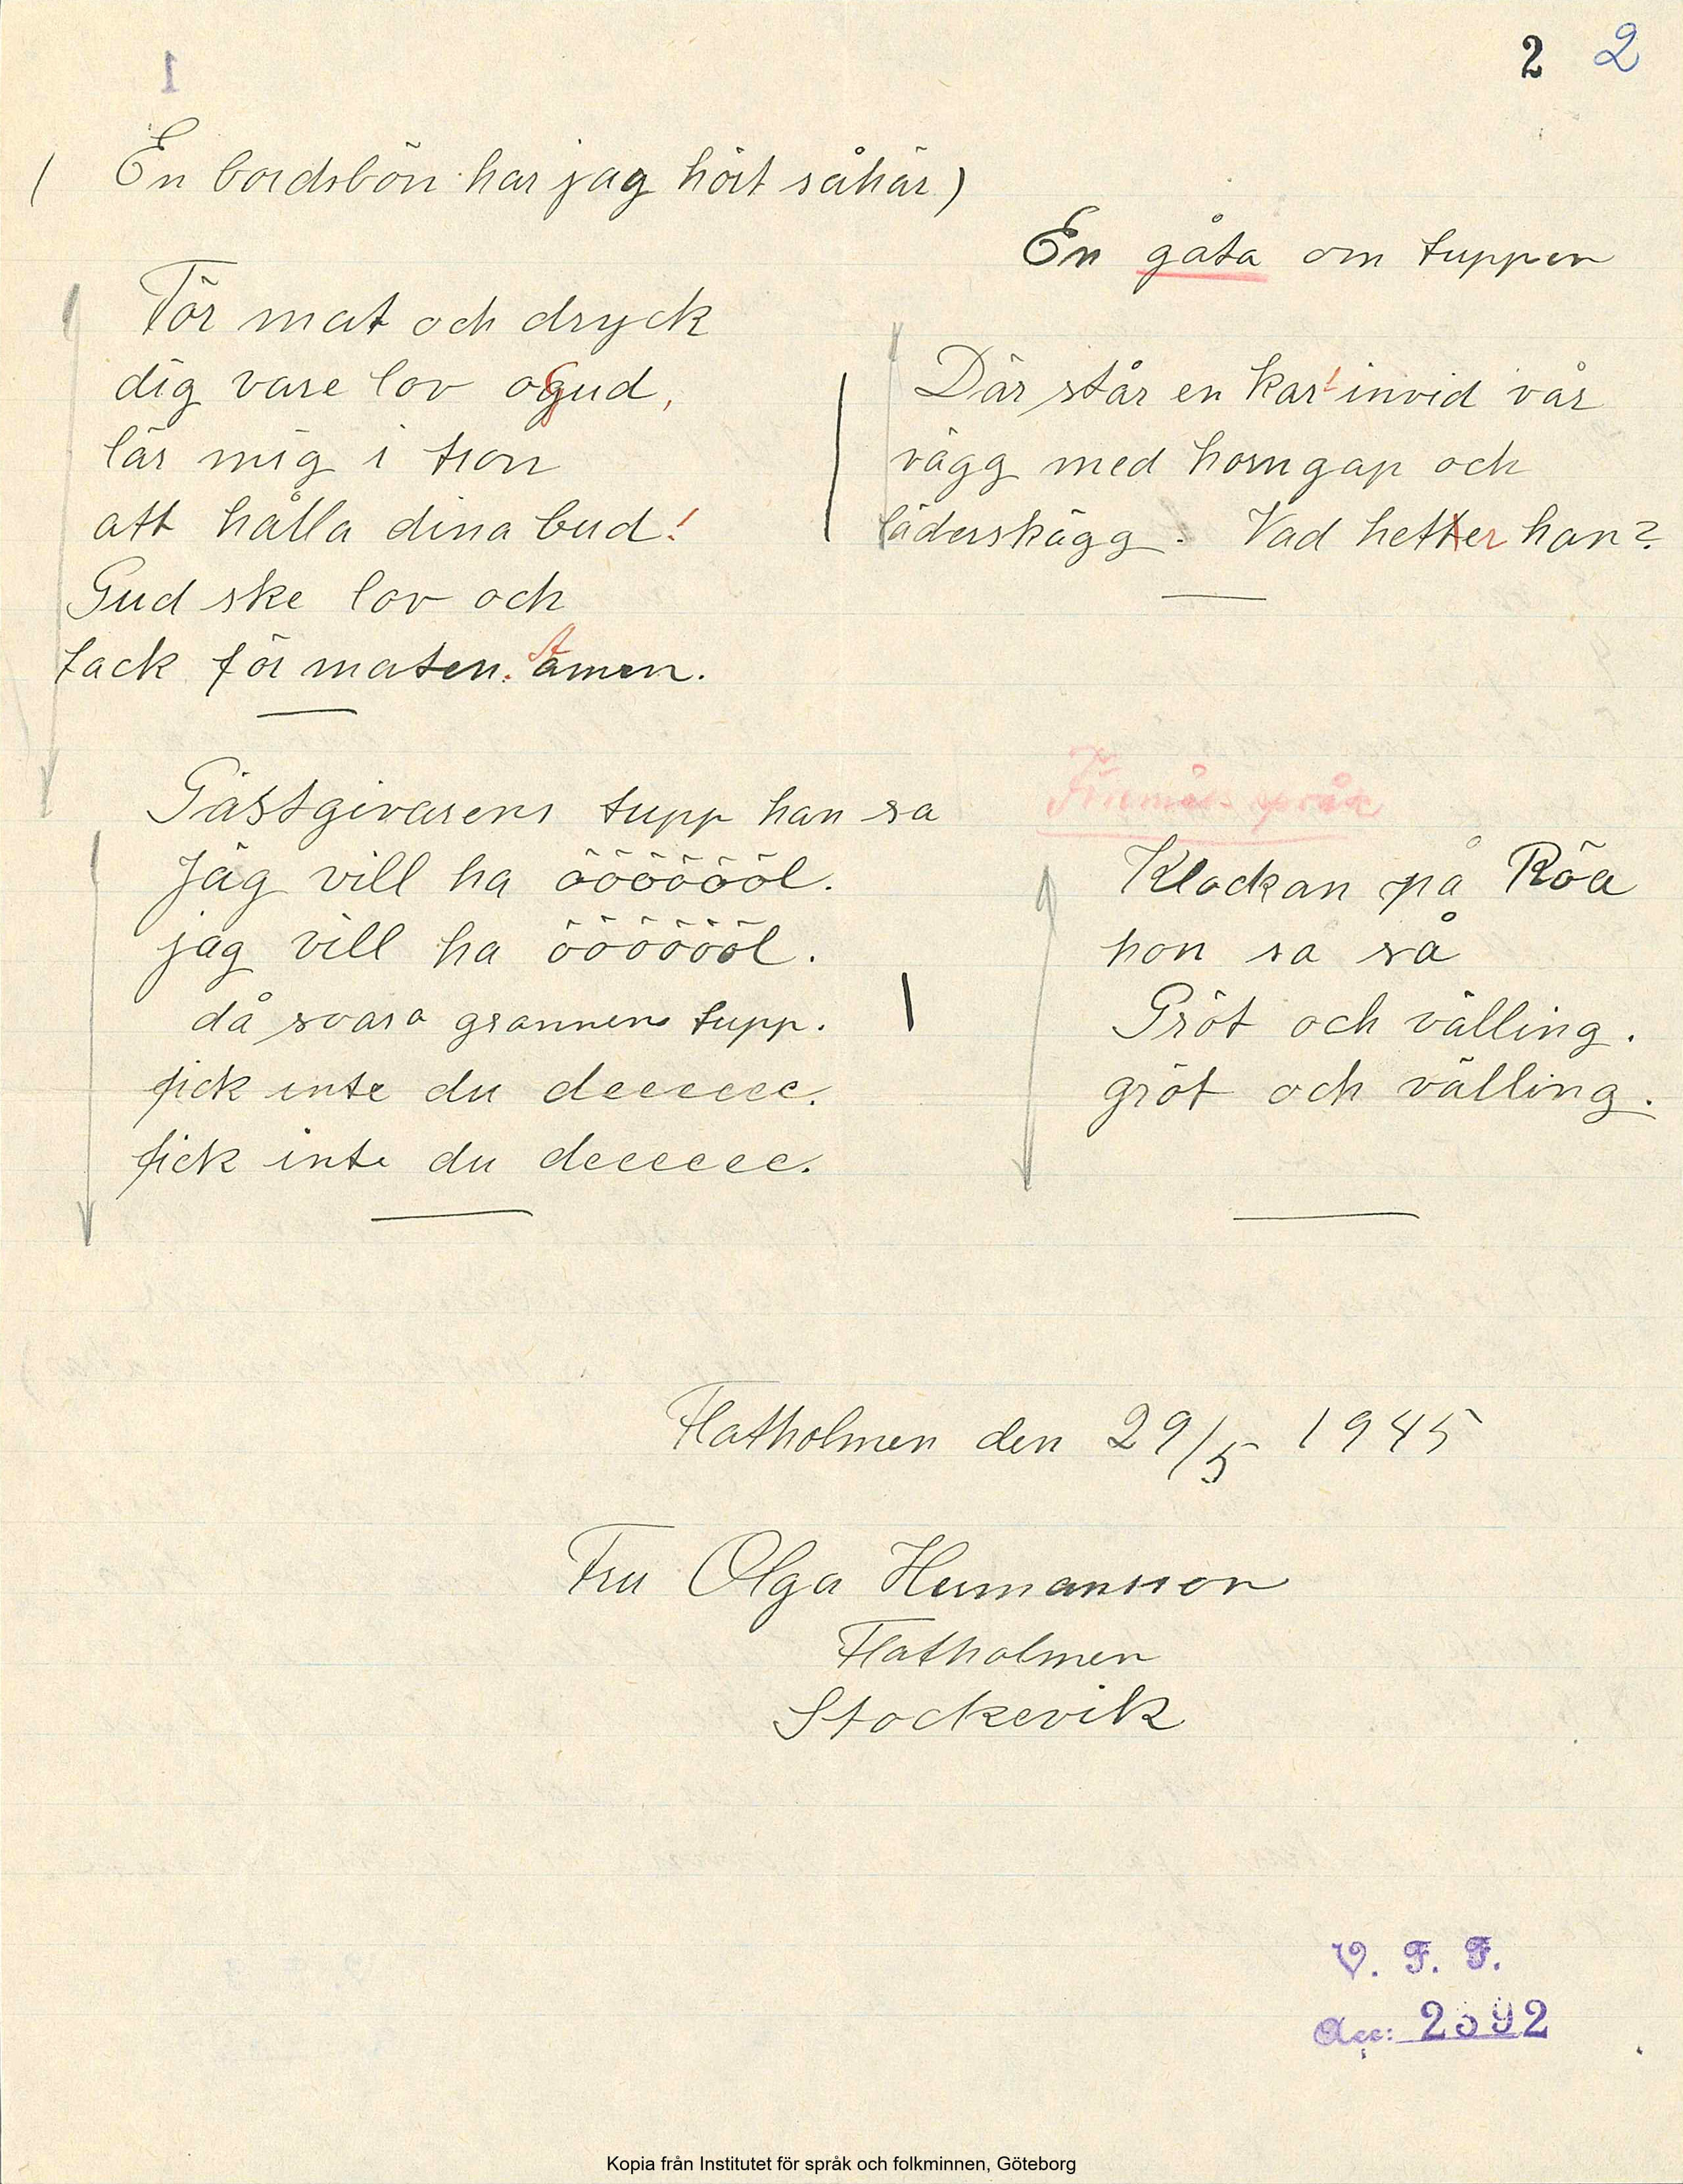 2 2
1
( En bordsbön har jag hört såhär )
För mat och dryck
dig vare lov o Gud,
lär mig i tron
att hålla dina bud!
Gud ske lov och
tack för maten. Amen.
Gästgivarens tupp han sa
Jag vill ha ööööööl.
jag vill ha ööööööl.
då svara grannens tupp.
fick inte du deeeeee.
fick inte du deeeeee.
En gåta om tuppen
Där står en kar! invid vår
vägg med horngap och
läderskägg. Vad hetter han?
Föremåls språk
Klockan på Röa
hon sa så
Gröt och välling.
gröt och välling.
Flatholmen den 29/5 1945
Fru Olga Hermansson
Flatholmen
Stockevik
V. F. F.
Acc: 2592
Kopia från Institutet för språk och folkminnen, Göteborg